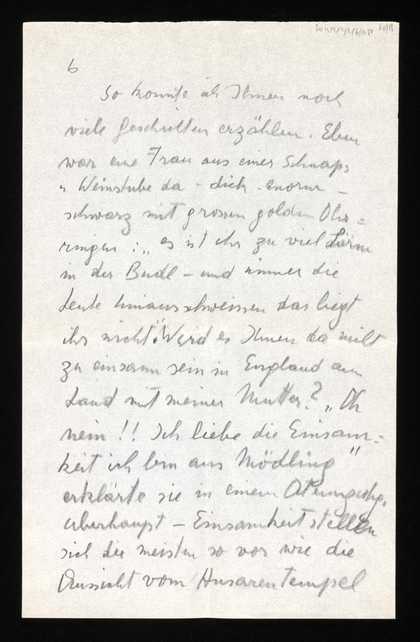 6
So könnte ich Ihnen noch
viele Geschichten erzählen. Eben
war eine Frau aus einer Schnaps
u Weinstube da - dick - enorm -
schwarz mit grossen goldenen Ohr=
ringen : „ es ist ihr zu viel Lärm
in der Budl - und immer die
Leute hinausschmeissen das liegt
ihr nicht". Wird es Ihnen da nicht
zu einsam sein in England am
Land mit meiner Mutter? „Oh
nein !! Ich liebe die Einsam=
keit ich bin aus Mödling"
erklärte sie in einem Atemzuge,
überhaupt - Einsamkeit stellen
sich die meisten so vor wie die
Aussicht vom Husarentempel